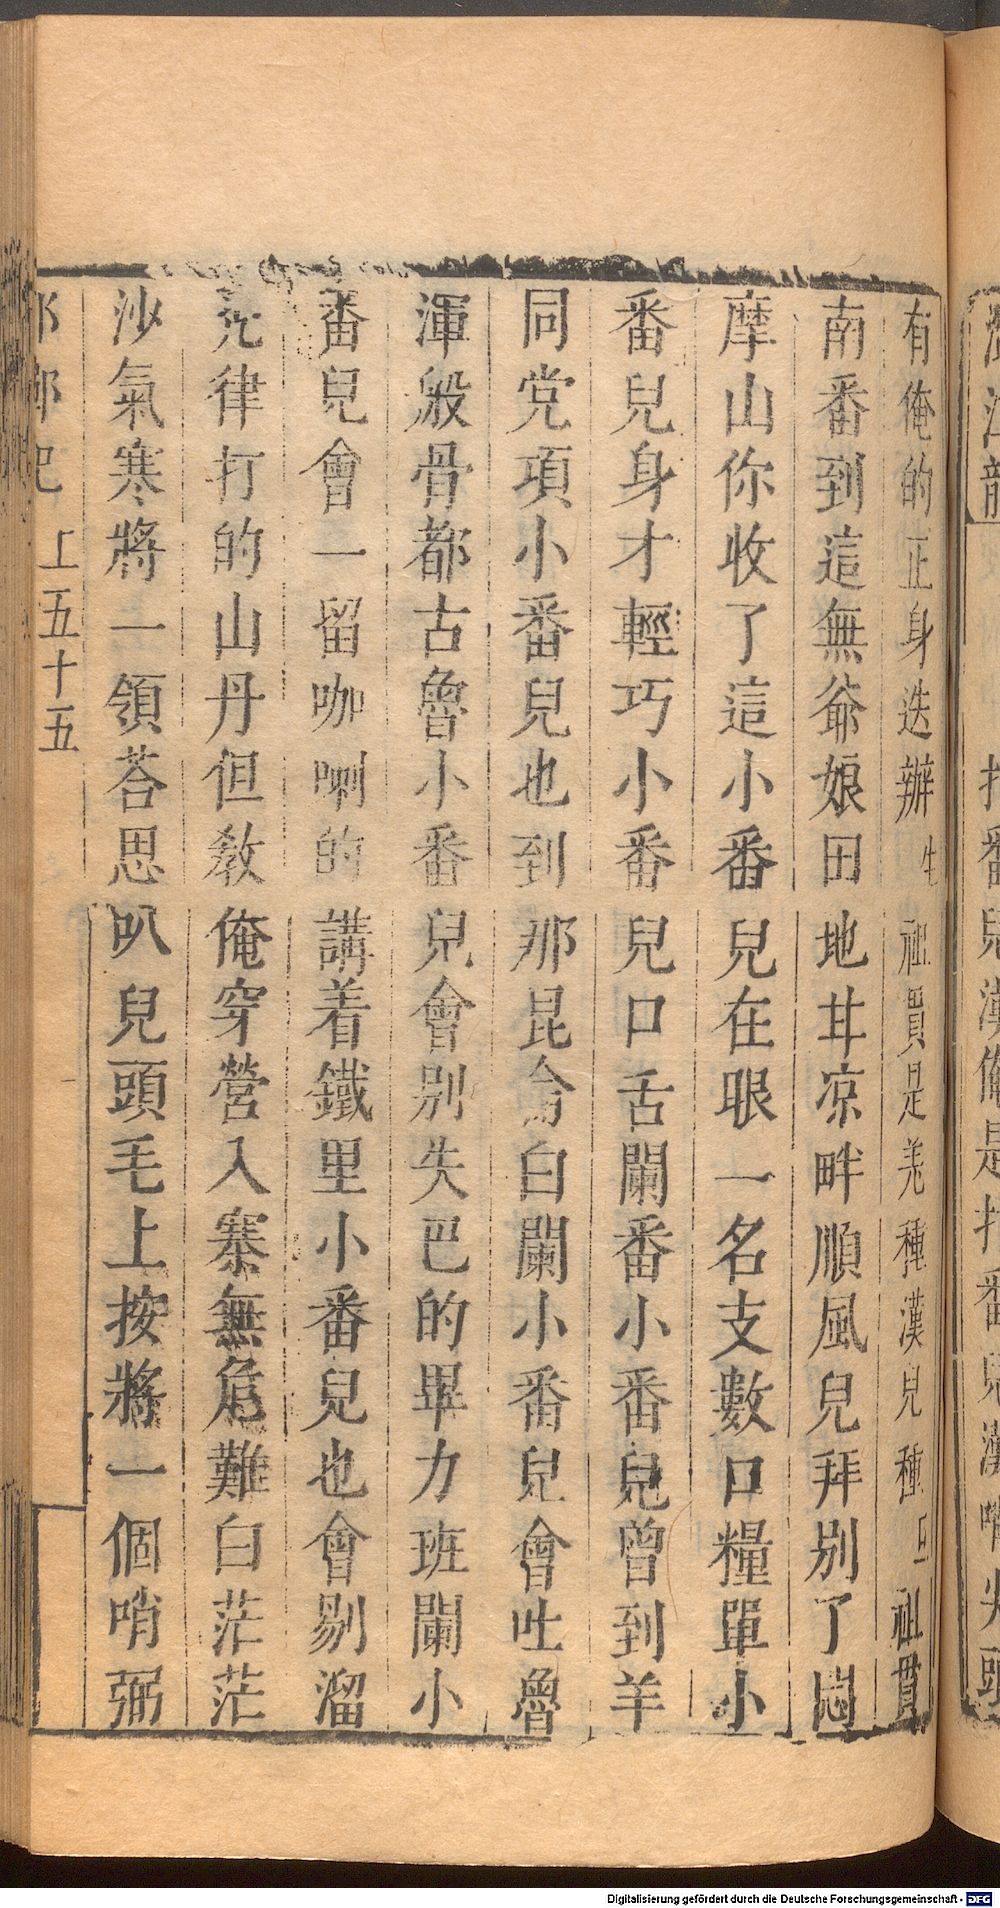 有俺的正身迭辦生祖貫是羌種漢兒種旦祖貫
南番到這無爺娘田地甘凉畔順風兒拜別了悶
摩山你收了這小番兒在眼一名支數口糧單小
番兒身才輕巧小番兒口舌闌番小番兒曾到羊
同党項小番兒也到那昆侖白闌小番兒會吐魯
渾般骨都古魯小番兒會別失巴的畢力班闌小
番兒會一留咖喇的講着鐵里小番兒也會剔溜
禿律打的山丹但教俺穿營入寨無危難白茫茫
沙氣寒將一領荅思叭兒頭毛上按將一個哨弼
邯鄲記 上五十五
Digitalisierung gefördert durch die Deutsche Forschungsgemeinschaft - DFG